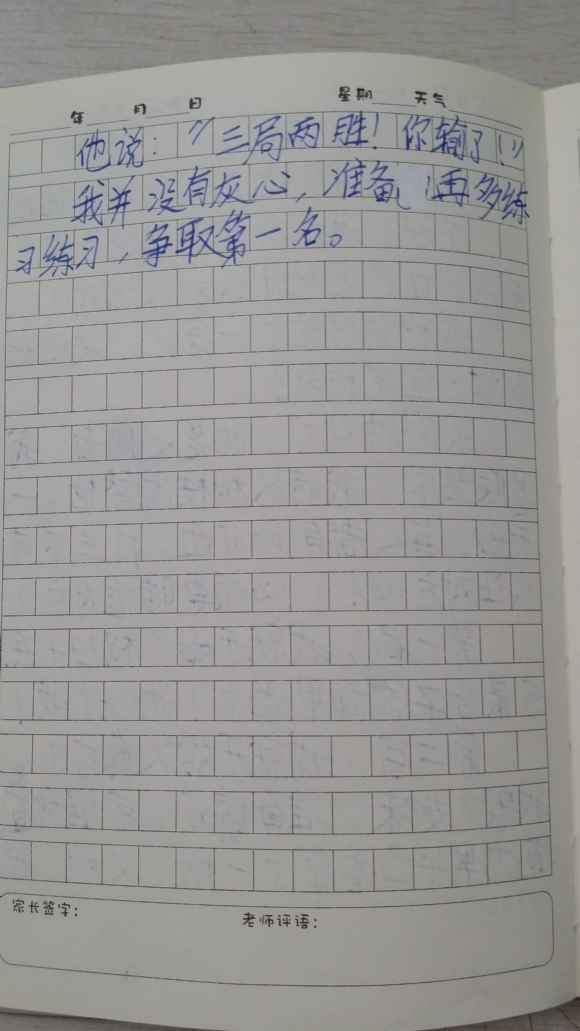 年 月 日 星期 天气
他说："三局两胜！你输了！"
我并没有灰心，准备再多练
习练习，争取第一名。
家长签字： 老师评语：